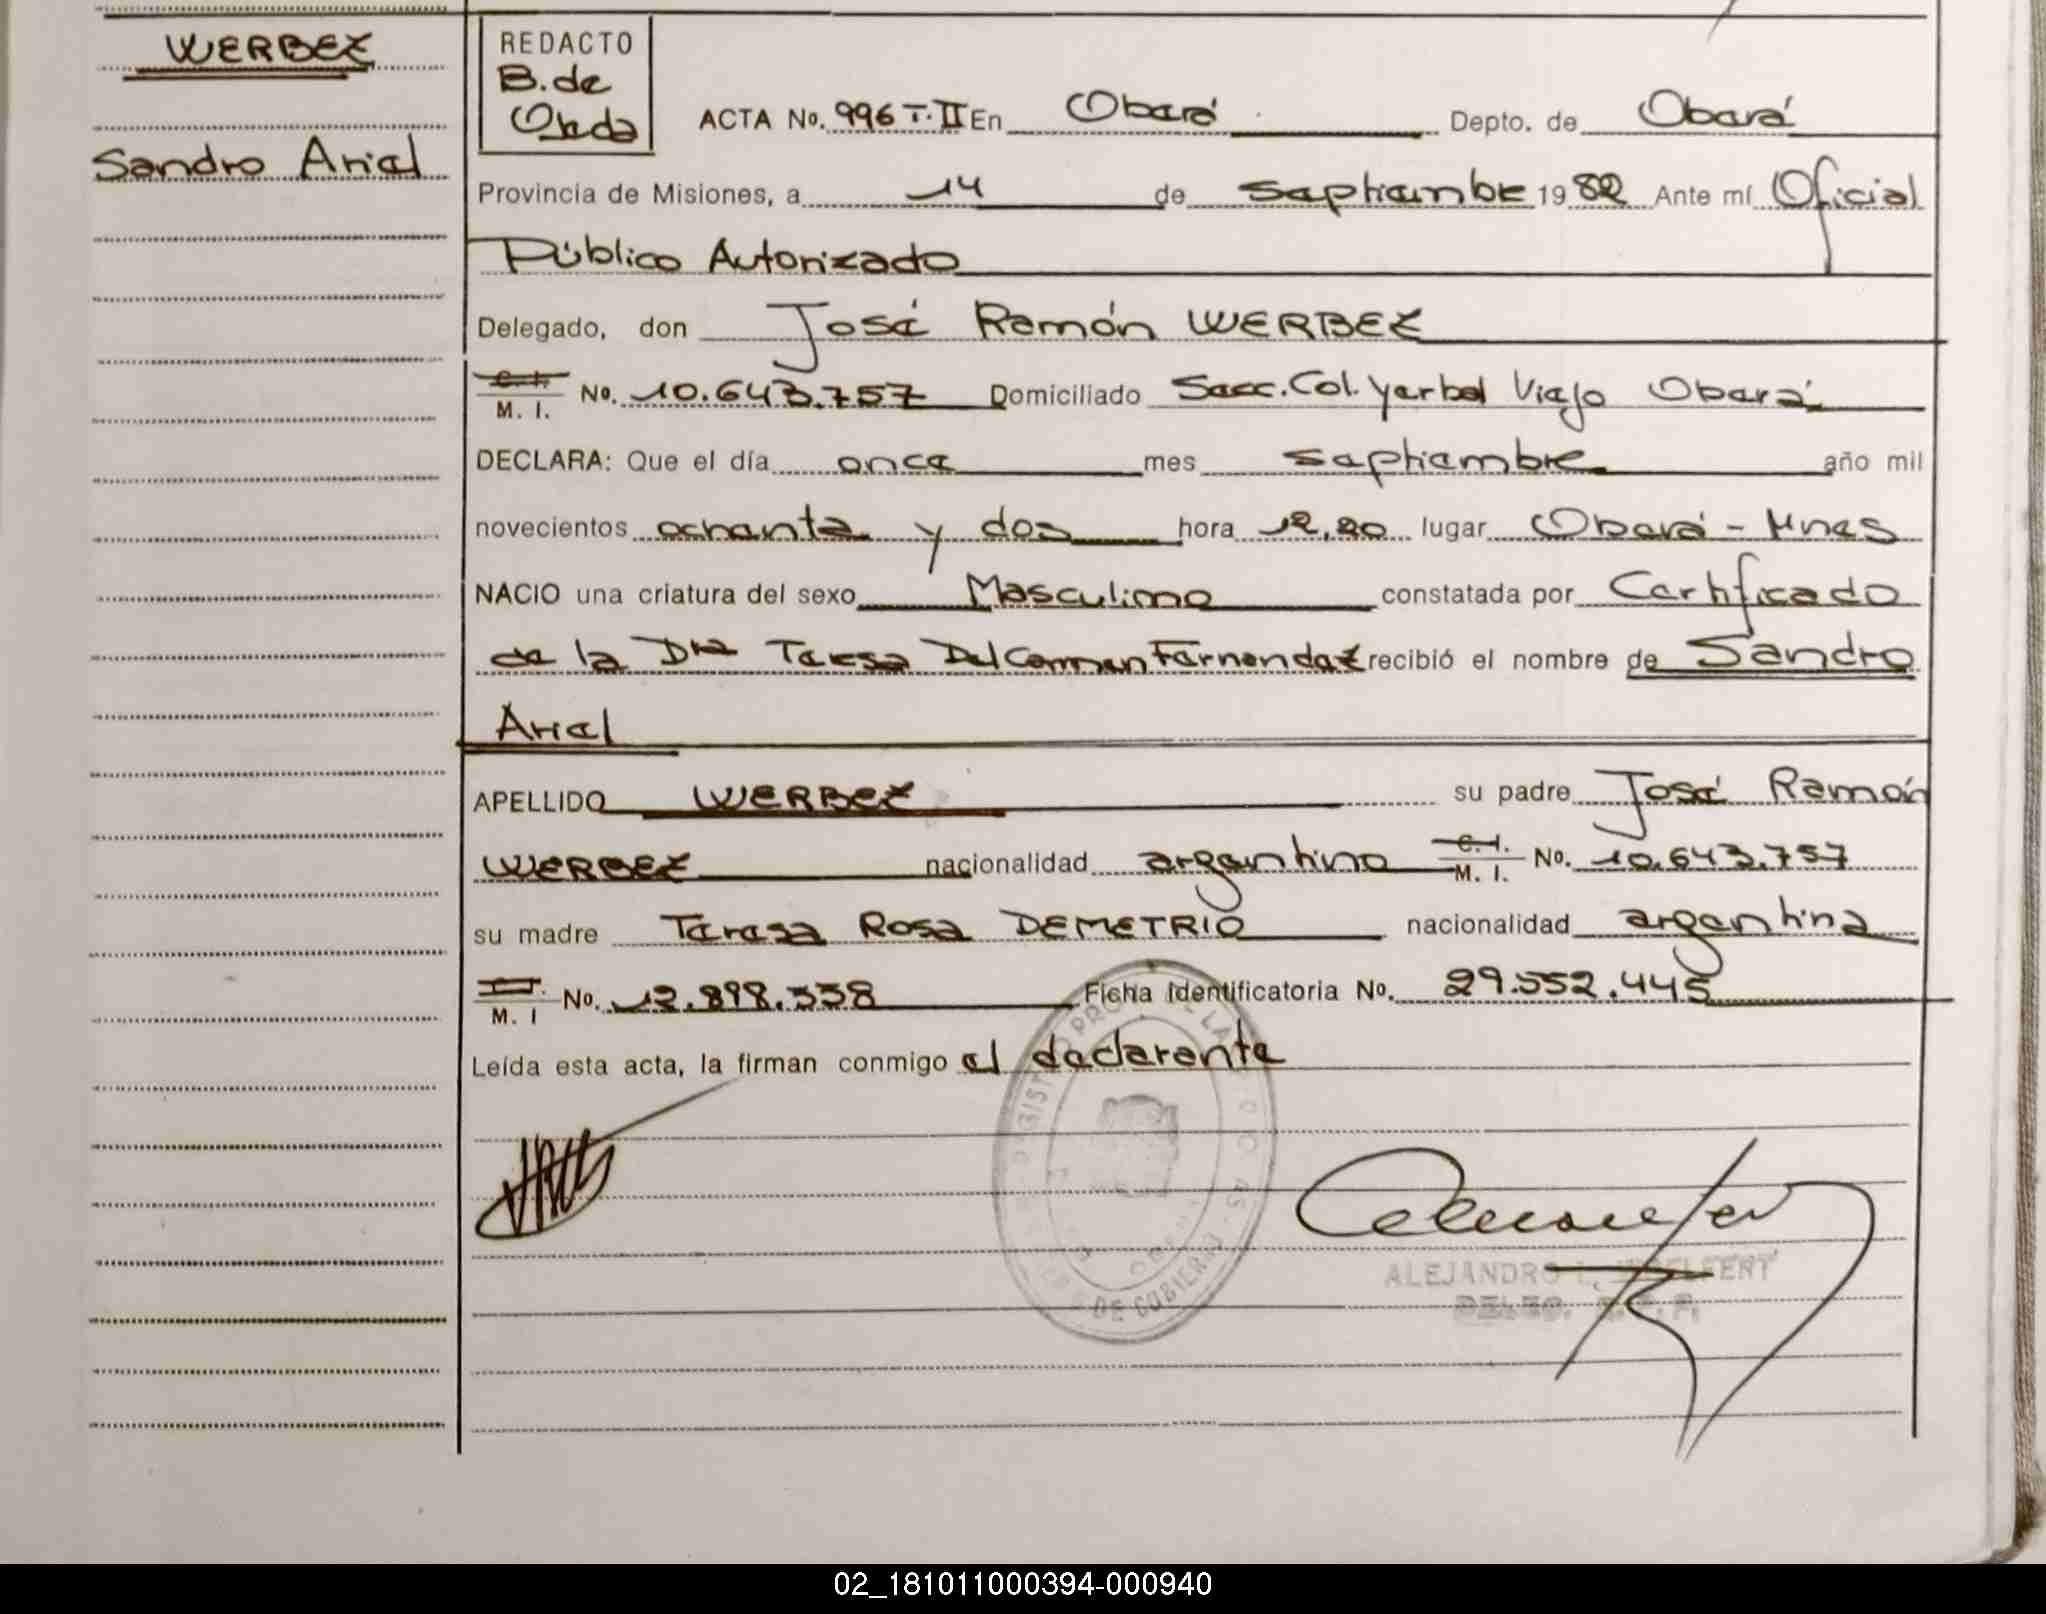 WERBEZ
Sandro Ariel
REDACTO
B. de
Ojeda
ACTA No. 996 T. II En Oberá Depto. de Oberá
Provincia de Misiones, a 14 de septiembre 1982 Ante mí Oficial
Público Autorizado
Delegado, don José Ramón WERBEZ
C. I.
M. I. No. 10.643.757 Domiciliado Secc. Col. Yerbal Viejo Oberá
DECLARA: Que el día once mes septiembre año mil
novecientos ochenta y dos hora 12,20 lugar Oberá - Mnes
NACIO una criatura del sexo Masculino constatada por Certificado
de la Dra Teresa Del Carmen Fernandez recibió el nombre de Sandro
Ariel
APELLIDO WERBEZ su padre José Ramón
WERBEZ nacionalidad argentino C. I. M. I. No. 10.643.757
su madre Teresa Rosa DEMETRIO nacionalidad argentina
M. I No. 12.898.338 Ficha Identificatoria No. 29.552.445
Leída esta acta, la firman conmigo el declarante
DE GOBIERNO
ALEJANDRO
02_181011000394-000940